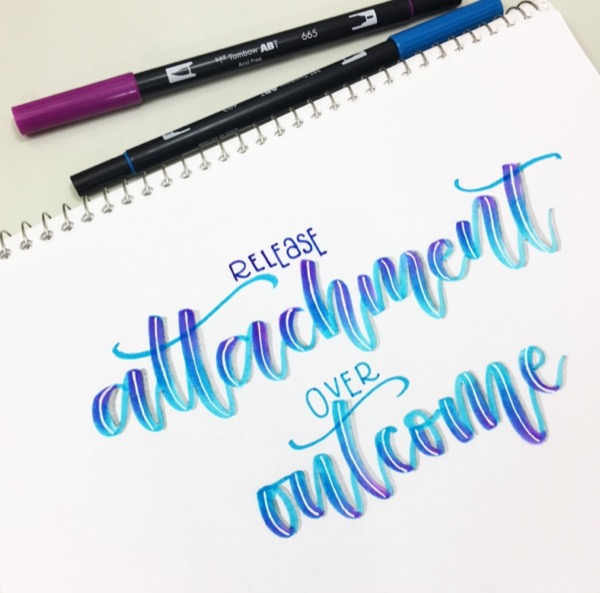 Tombow ABT 665
Acid Free
RELEASE
attachment
OVER
outcome